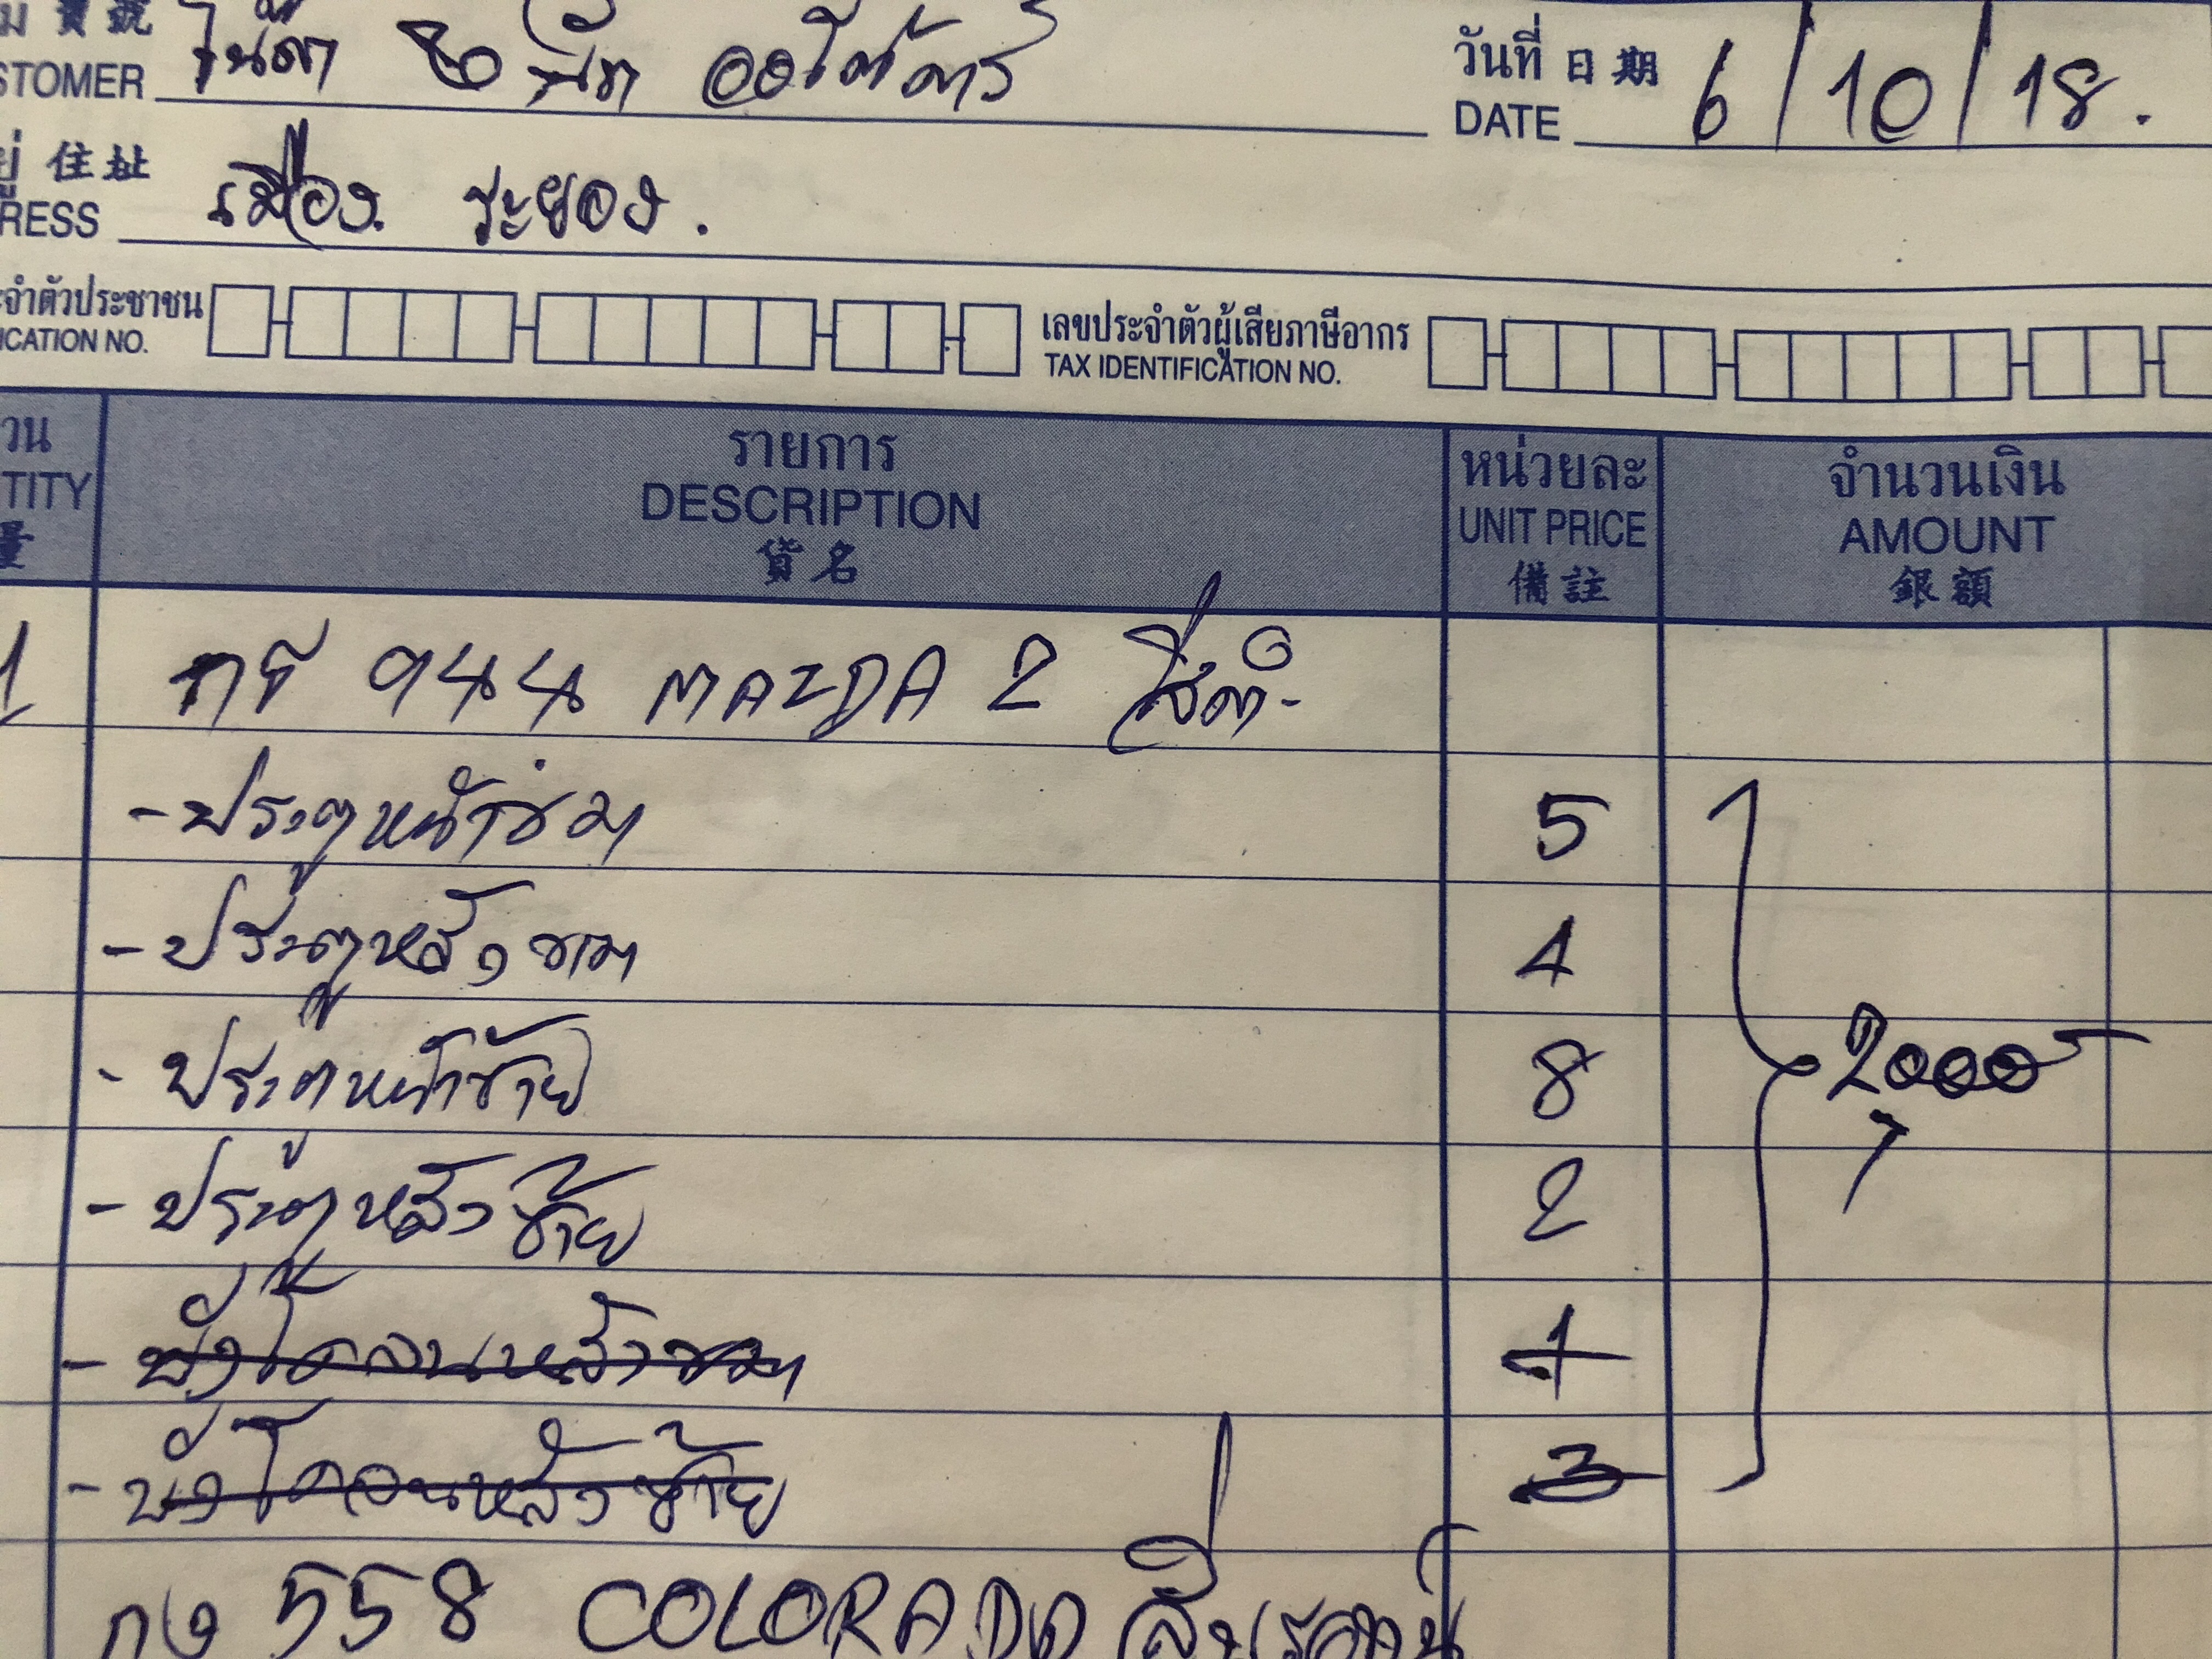 ม 寶號
STOMER
วันที่ 日期 6/10/18.
DATE
ยู่ 住址 เมือง ระยอง.
RESS
ะจำตัวประชาชน
ICATION NO.
เลขประจำตัวผู้เสียภาษีอากร
TAX IDENTIFICATION NO.
วน รายการ หน่วยละ จำนวนเงิน
TITY DESCRIPTION UNIT PRICE AMOUNT
量 貨名 備註 銀額
1 944 MAZDA 2 สีดำ
- ประตูหน้าขวา 5
- ประตูหลังขวา 4
- ประตูหน้าซ้าย 8 2000
- ประตูหลังซ้าย 2
- บังโคลนหลังขวา 1
- บังโคลนหลังซ้าย 3
กง 558 COLORADO